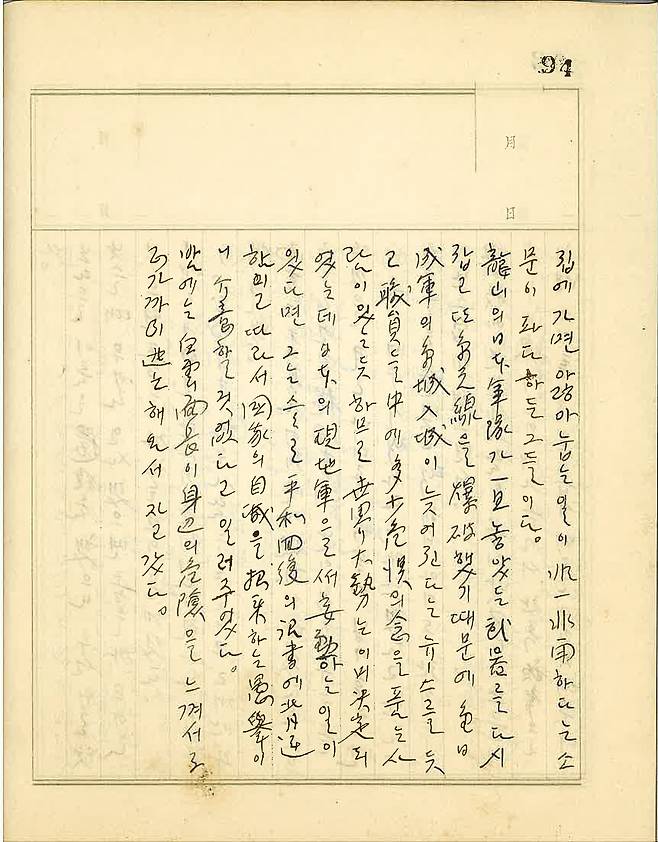 94
月
日
집에 가면 안잠아 눕는 일이 非一非再하다는 소
문이 파다하든 그들이다.
龍山의 日本軍隊가 一旦 놓았든 武器를 다시
잡고 또 京元線을 爆破했기 때문에 今日
美軍의 京城入城이 늦어진다는 뉴-스를 듯
고 職員들 中에 多少 危惧의 念을 품는 사
람이 있는 듯 하므로 世界大勢는 이미 決定되
였는데 日本의 現地軍으로서 妄動하는 일이
있다면 그는 스스로 平和回復의 詔書에 背反
함이고 따라서 國家의 自滅을 招來하는 愚擧이
니 介意할 것 없다고 일러주었다.
밤에는 白雲面長이 身邊의 危險을 느껴서 우
리가 까지 避亂해 와서 자고 갔다.